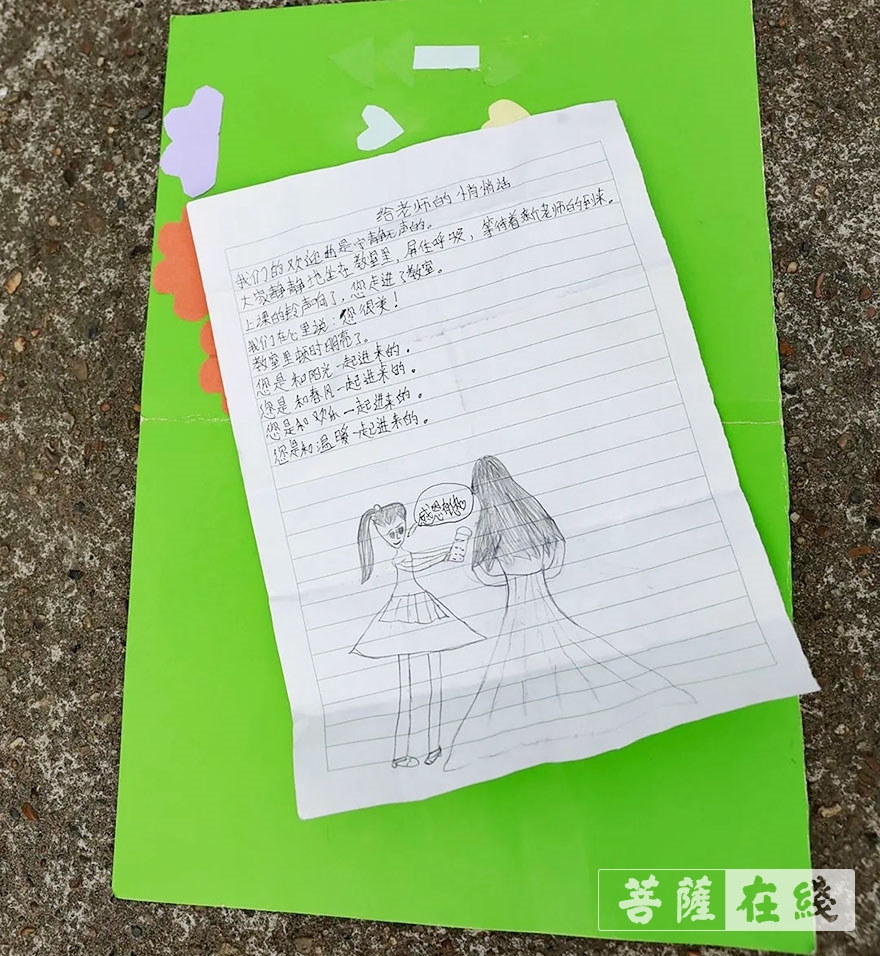 给老师的悄悄话
我们的欢迎曲是宁静无声的。
大家静静地坐在教室里，屏住呼吸，等待着新老师的到来。
上课的铃声响了，您走进了教室。
我们在心里说：您很美！
教室里顿时明亮了。
您是和阳光一起进来的。
您是和春风一起进来的。
您是和欢乐一起进来的。
您是和温暖一起进来的。
感恩有您
菩薩在綫